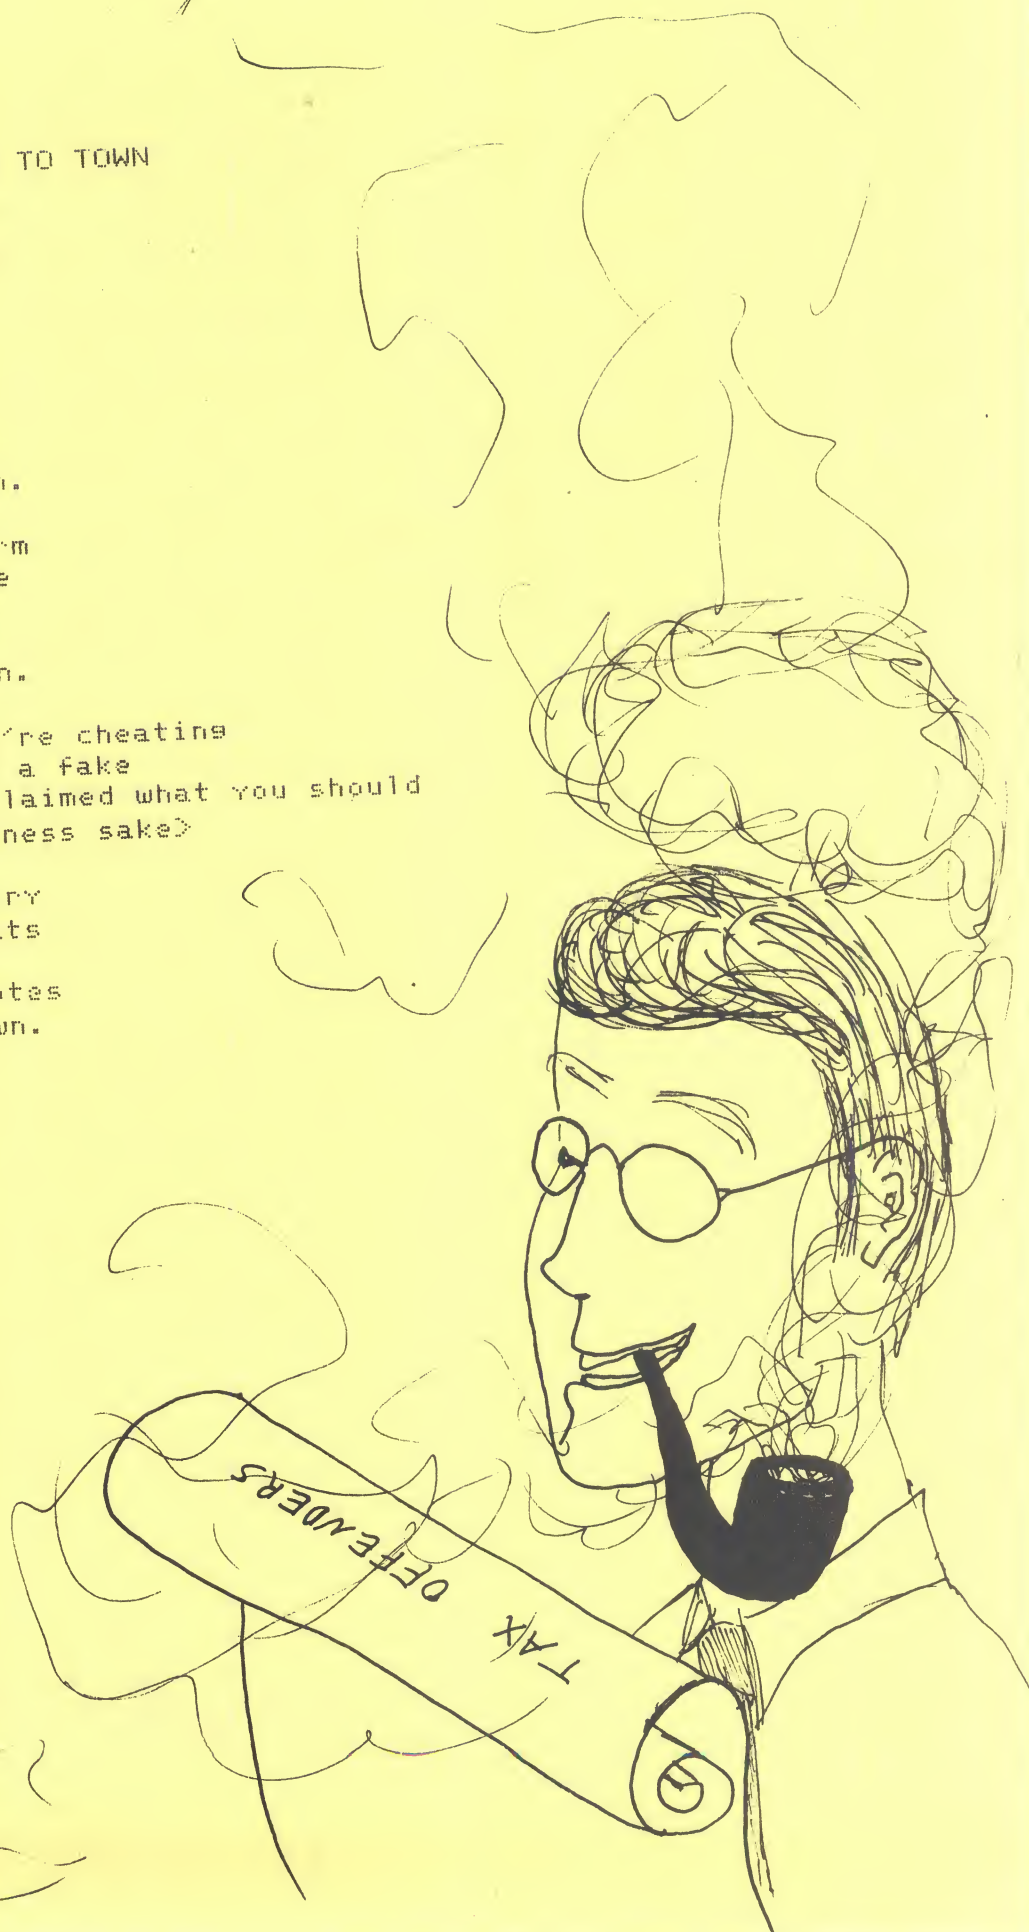 TO TOWN
n.
rm
e
n.
're cheating
a fake
laimed what you should
ness sake>
ry
its
ates
wn.
TAX OFFENDERS